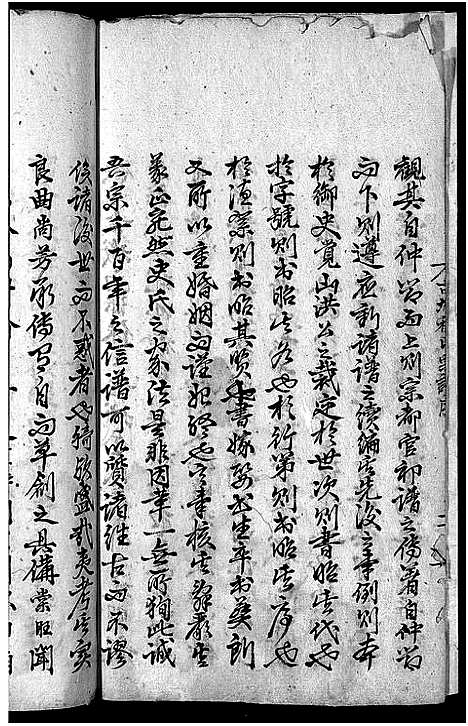 觀其自仲容而上則宗都官初譜之舊著自仲容
而下則遵應新諸譜之續編其先後之事例則本
於御史覺山洪公之裁定於世次則書昭其代也
於字號則書昭其名也於行第則書昭其序也
於德業則書昭其賢也書嫁娶書生卒書葬則
又所以重婚姻而謹始終也其事核其辭嚴其
義正宛然史氏之家法是非因革一無所狥此誠
吾宗千百年之信譜可以質諸往古而不謬
俟諸後世而不惑者也猗歟盛哉夷考其實
良由尚芳承傳有自而草創之具備棠旺聞